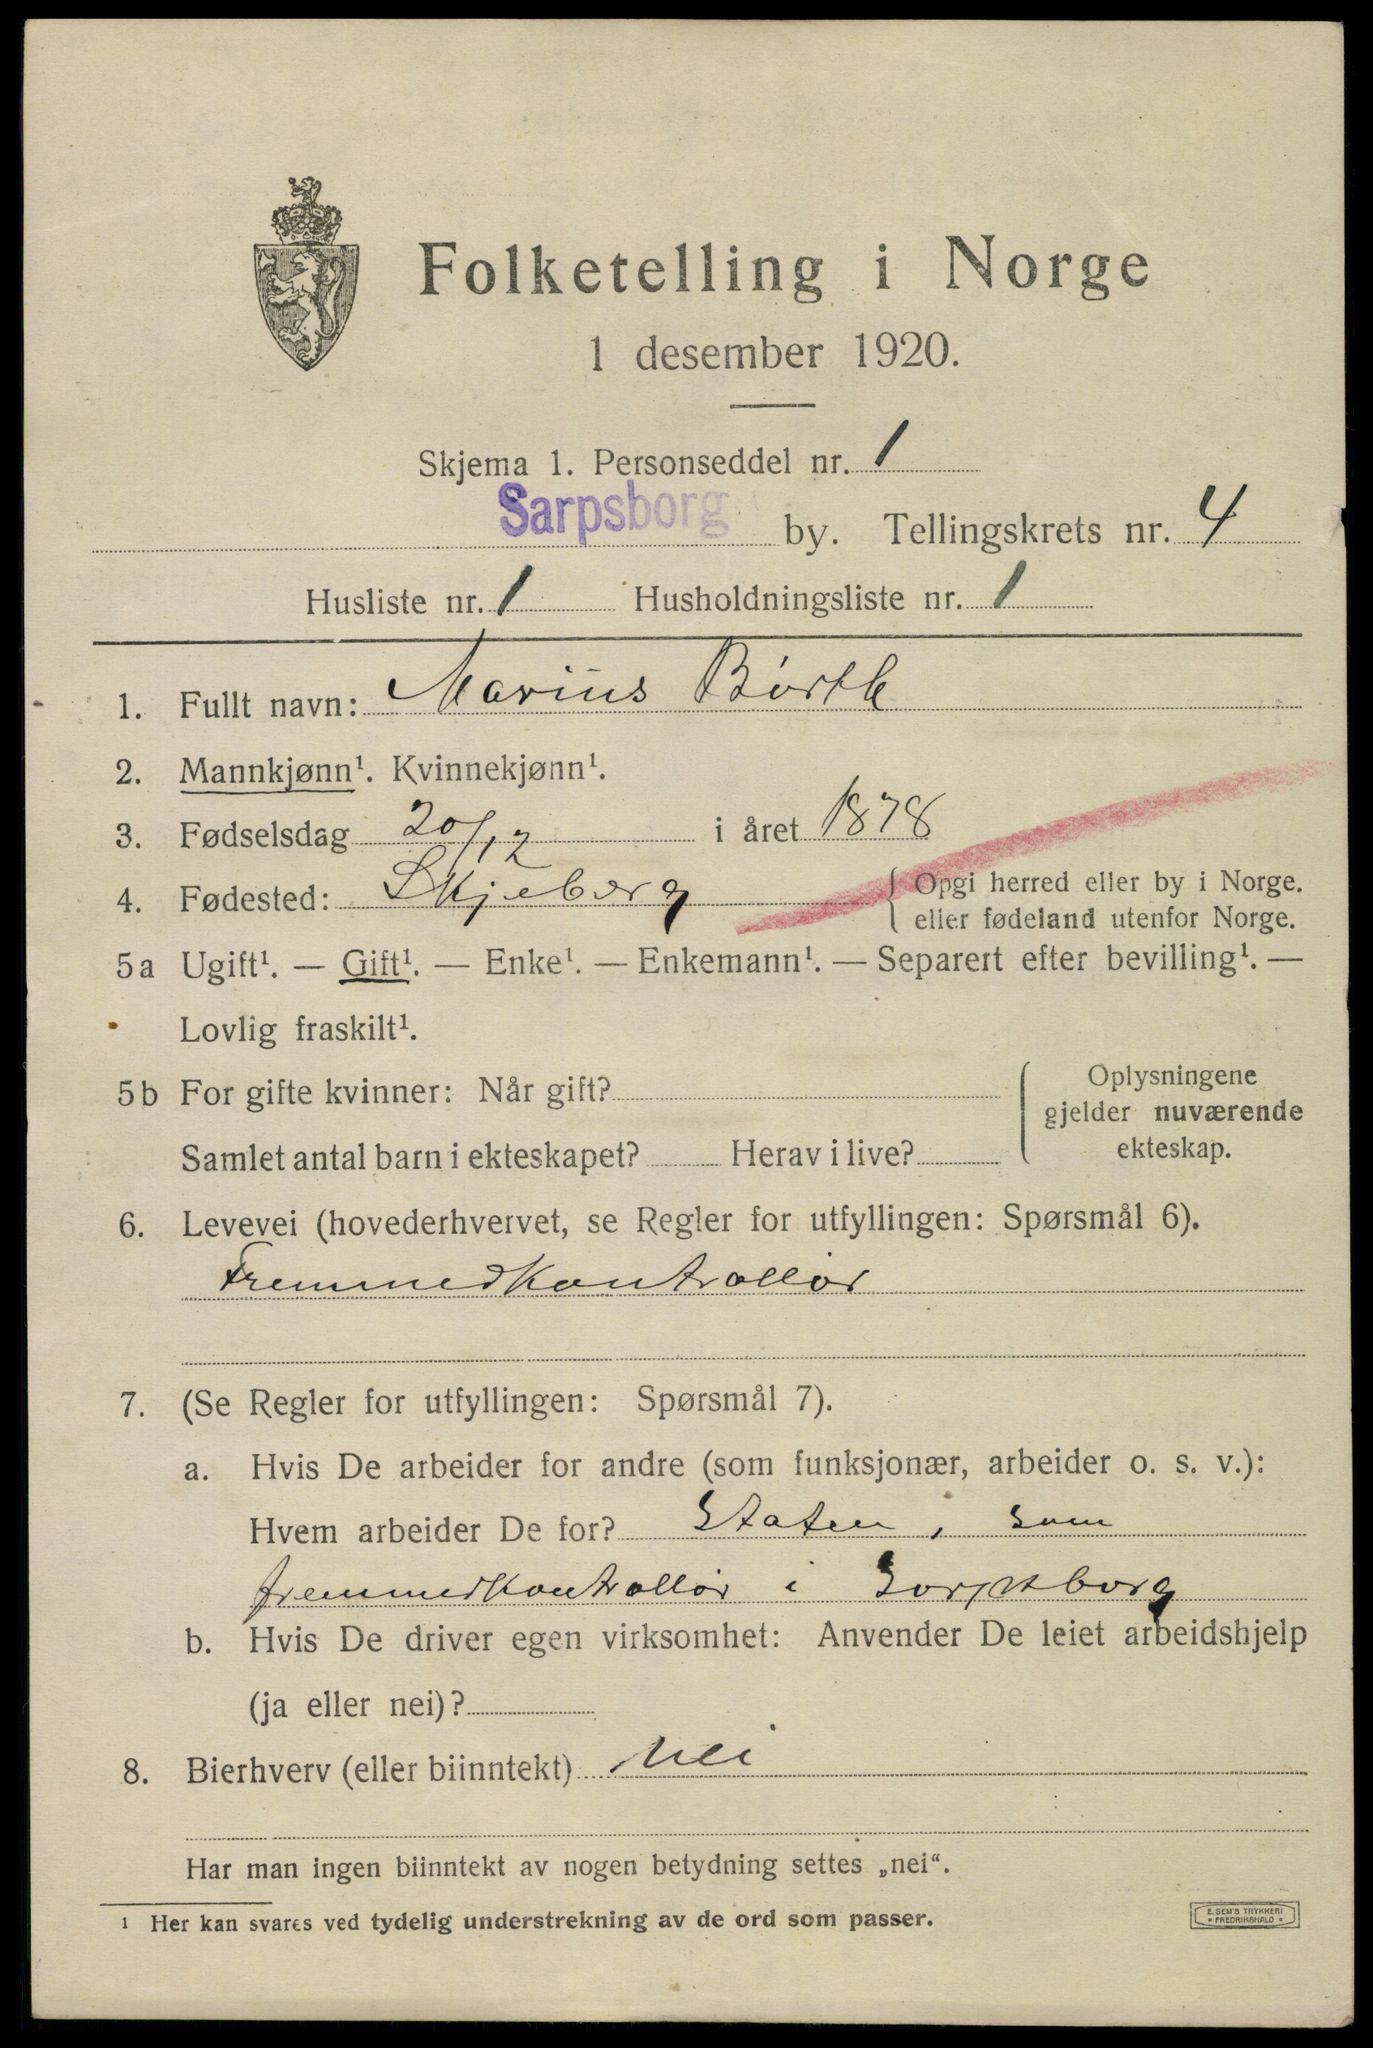 Folketelling i Norge
1 desember 1920.
Skjema 1. Personseddel nr. 1
Sarpsborg by. Tellingskrets nr. 4
Husliste nr. 1 Husholdningsliste nr. 1
1. Fullt navn: Marius
2. Mannkjønn¹. Kvinnekjønn¹.
3. Fødselsdag 20/12 i året 1878
4. Fødested: Skjeberg { Opgi herred eller by i Norge.
eller fødeland utenfor Norge.
5a Ugift¹. — Gift¹. — Enke¹. — Enkemann¹. — Separert efter bevilling¹. —
Lovlig fraskilt¹.
5b For gifte kvinner: Når gift?
Samlet antal barn i ekteskapet? Herav i live?
Oplysningene
gjelder nuværende
ekteskap.
6. Levevei (hovederhvervet, se Regler for utfyllingen: Spørsmål 6).
Fremmedkontrollør
7. (Se Regler for utfyllingen: Spørsmål 7).
a. Hvis De arbeider for andre (som funksjonær, arbeider o. s. v.):
Hvem arbeider De for? Staten, som
fremmedkontrollør i Sarpsborg
b. Hvis De driver egen virksomhet: Anvender De leiet arbeidshjelp
(ja eller nei)?
8. Bierhverv (eller biinntekt) Nei
Har man ingen biinntekt av nogen betydning settes „nei“.
¹ Her kan svares ved tydelig understrekning av de ord som passer.
E. SEM'S TRYKKERI
* FREDRIKSHALD *